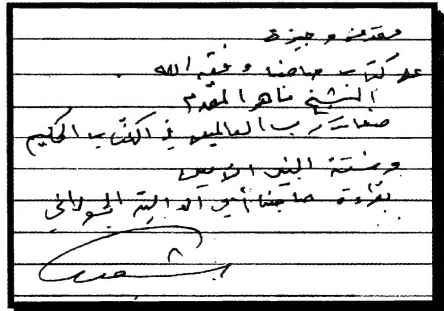 مقدمة وجيزة
على كتاب صاحبنا وفقه الله
الشيخ ماهر المقدم
صفات رب العالمين في الكتاب الحكيم
وسنة النبي الأمين
بقراءة صاحبنا أبي الدالية الجولاني